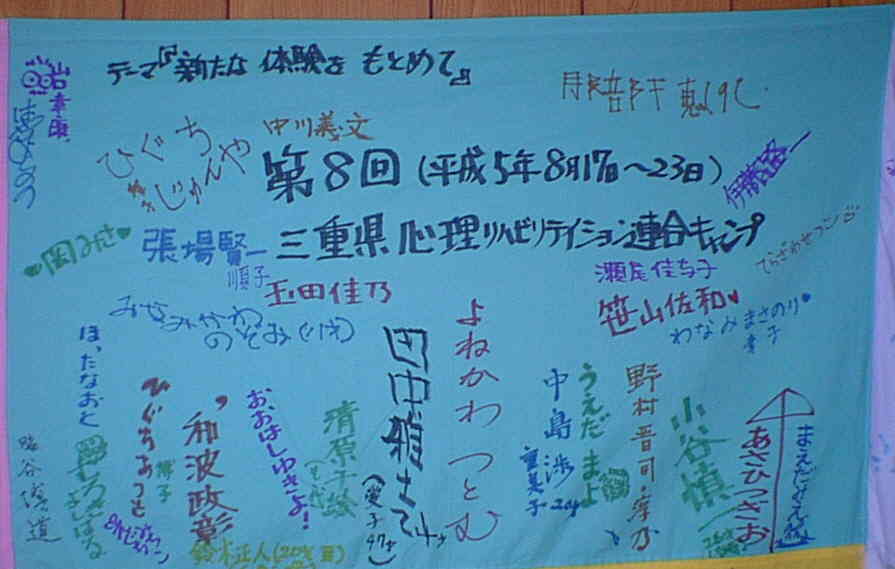 テーマ『新たな 体験を もとめて』
ひぐち
じゅんや
中川義文
第8回(平成5年8月17日～23日)
伊藤啓一
岡みさき
張場賢一
順子
三重県 心理リハビリテイション連合キャンプ
てらざわせつこ
玉田佳乃
瀬尾佳与子
笹山佐和
わなみ まさのり
幸子
みなみかわ
のぞみ
ほったなおと
ひぐちあつも
博子
和波政彰
おおはしゆきよ!
清原千絵
田中雅
(愛子
よねかわ つとむ
中島 渉
重美子
うえだ まよ
野村晋司・摩乃
小谷慎
あさひつぎお
鈴木正人(20才)